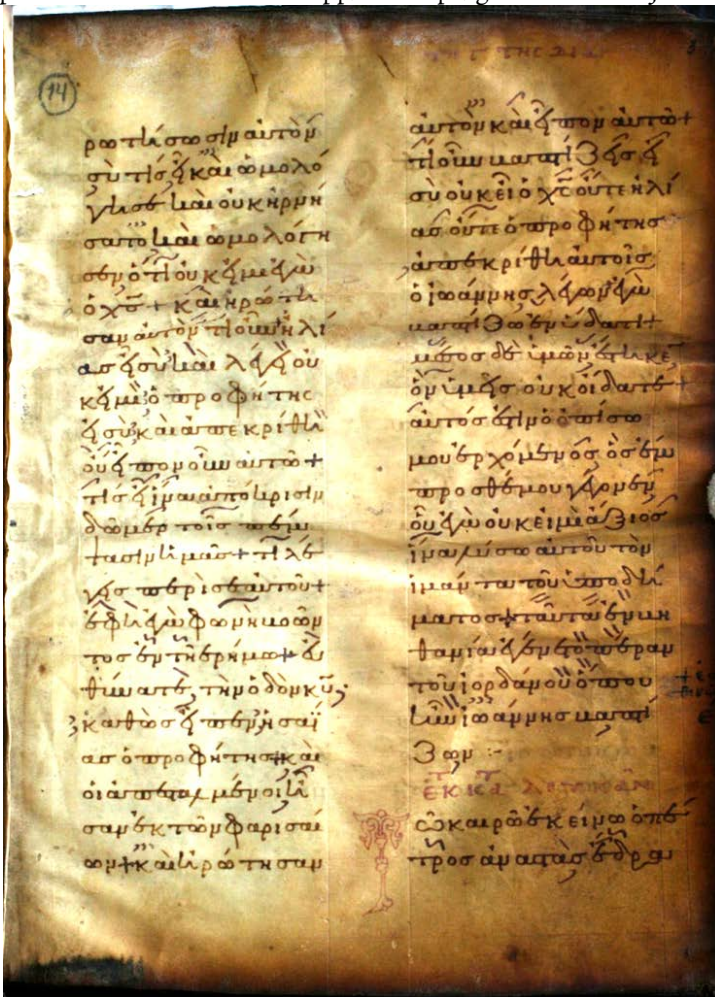 14
ρωτήσωσιν αὐτὸν
σὺ τίς εἶ καὶ ὡμολό
γησε καὶ οὐκ ἠρνή
σατο καὶ ὡμολόγη
σεν ὅτι οὐκ εἰμὶ ἐγὼ
ὁ χς + καὶ ἠρώτη
σαν αὐτὸν τί οὖν ἠλί
ας εἶ σὺ καὶ λέγει οὐ
κ εἰμὶ ὁ προφήτης
εἶ σὺ καὶ ἀπεκρίθη
οὔ εἶπον οὖν αὐτῷ +
τίς εἶ ἵνα ἀπόκρισιν
δῶμεν τοῖς πέμ
ψασιν ἡμᾶς + τί λέ
γεις περὶ σεαυτοῦ +
ἔφη ἐγὼ φωνὴ βοῶν
τος ἐν τῇ ἐρήμω + εὐ
θύνατε τὴν ὁδὸν κυ
καθὼς εἶπεν ἠσαΐ
ας ὁ προφήτης + καὶ
οἱ ἀπεσταλμένοι ἦ
σαν ἐκ τῶν φαρισαί
ων + καὶ ἠρώτησαν
αὐτὸν καὶ εἶπον αὐτῶ +
τί οὖν βαπτίζεις εἰ
σὺ οὐκ εἶ ὁ χς οὔτε ἠλί
ας οὔτε ὁ προφήτης
ἀπεκρίθη αὐτοῖς
ὁ ἰωάννης λέγων ἐγὼ
βαπτίζω ἐν ὕδατι +
μέσος δὲ ὑμῶν ἕστηκε
ὃν ὑμεῖς οὐκ οἴδατε +
αὐτός ἐστιν ὁ ὀπίσω
μου ἐρχόμενος ὃς ἔμ
προσθέν μου γέγονεν
οὗ ἐγὼ οὐκ εἰμὶ ἄξιος
ἵνα λύσω αὐτοῦ τὸν
ἱμάντα τοῦ ὑποδή
ματος + ταῦτα ἐν βη
θανία ἐγένετο πέραν
τοῦ ἰορδάνου ὅπου
ἦν ἰωάννης βαπτί
ζων :-
ἐκ κατ λουκᾶν
Τῶ καιρῶ ἐκείνω ὁ πέ
τρος ἀναστὰς ἔδρα